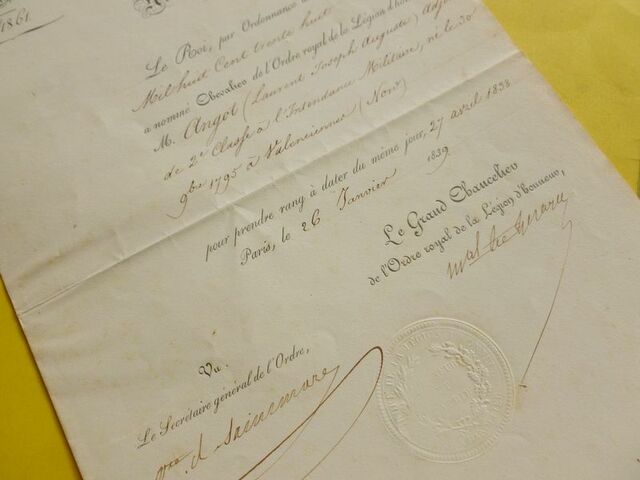 1861.
Le Roi, par Ordonnance
Mil huit Cent trente huit
a nommé Chevalier de l'Ordre royal de la Légion d'hon
M. Angot (Laurent Joseph Auguste) Adj
de 2e Classe à l'Intendance Militaire, né le 30
9bre 1795 à Valenciennes (Nord)
pour prendre rang à dater du même jour, 27 avril 1838
Paris, le 26 Janvier 1839
Le Grand Chancelier
de l'Ordre royal de la Légion d'honneur,
Mal
Vu.
Le Secrétaire général de l'Ordre,
Vte d. Saintmars